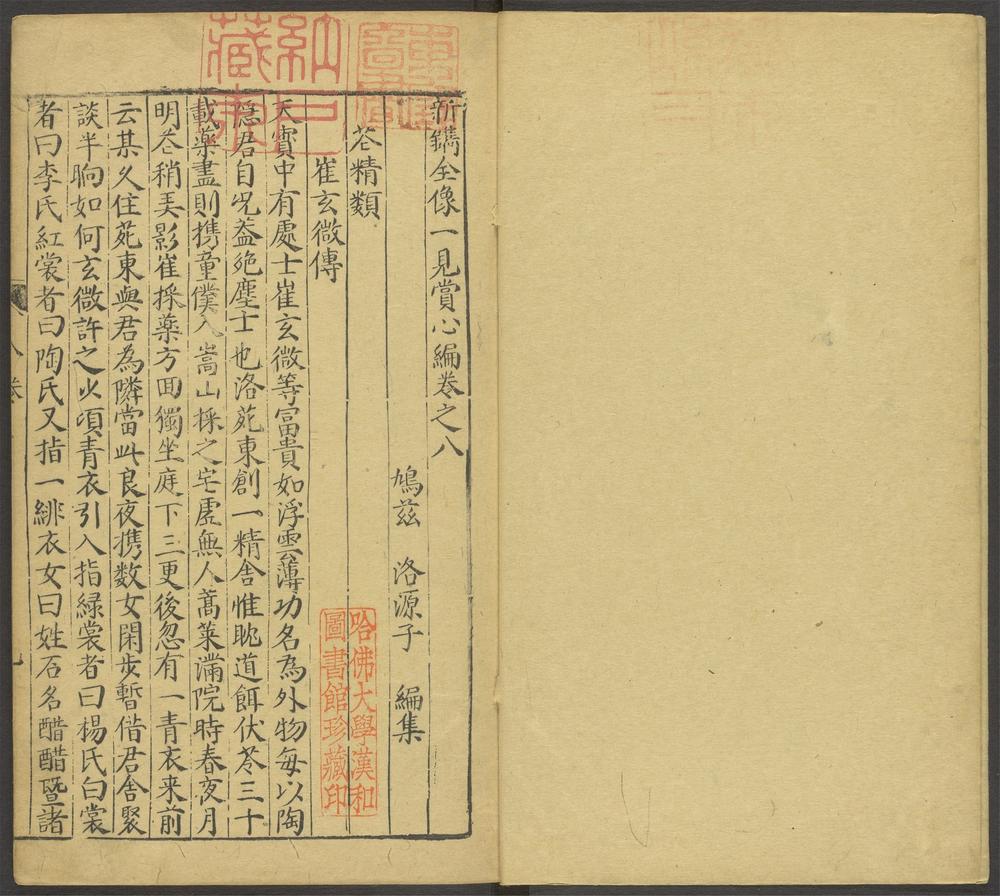 新鐫全像一見賞心編卷之八
鳩茲　洛源子　編集
花精類
崔玄微傳
天寶中有處士崔玄微等冨貴如浮雲薄功名為外物每以陶
隱君自況盖絶塵士也洛苑東創一精舍惟眈道餌伏苓三十
載藥盡則携童僕入嵩山採之宅虛無人蒿萊滿院時春夜月
明花稍弄影崔採藥方回獨坐庭下三更後忽有一青衣来前
云某久住苑東與君為隣當此良夜携数女閑步暫借君舍聚
談半晌如何玄微許之少頃青衣引入指緑裳者曰楊氏白裳
者曰李氏紅裳者曰陶氏又指一緋衣女曰姓石名醋醋暨諸
八卷
哈佛大學漢和
圖書館珍藏印